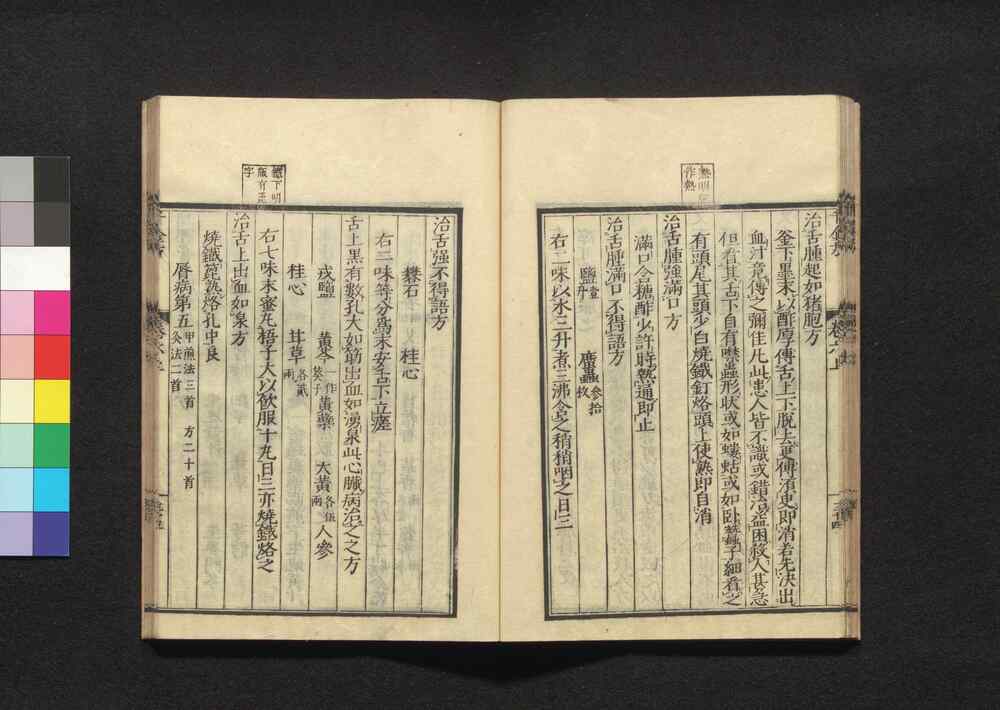 治舌腫起如猪胞方
釜下墨末以酢厚傅舌上下脫去更傅須更即消若先决出
血汁竟傅之彌佳凡此患人皆不識或錯治益困殺人甚急
但看其舌下自有噤蟲形狀或如螻蛄或如臥蠶子細看之
有頭尾其頭少白燒鐵釘烙頭上使熟即自消
治舌腫強滿口方
滿口含糖酢少許時熱通即止
治舌腫滿口不得語方
鹽壹升 䗪蟲參拾枚
右二味以水三升煮三沸含之稍稍咽之日三
治舌强不得語方
礬石 桂心
右二味等分爲末安舌下立瘥
舌上黑有數孔大如筯出血如湧泉此心臟病治之之方
戎鹽 黃芩一作葵子 黃蘗 大黃各伍兩 人參
桂心 甘草各貳兩
右七味末蜜丸梧子大以飲服十丸日三亦燒鐵烙之
治舌上出血如泉方
燒鐵篦熟烙孔中良
脣病第五甲煎法三首 方二十首 灸法二首